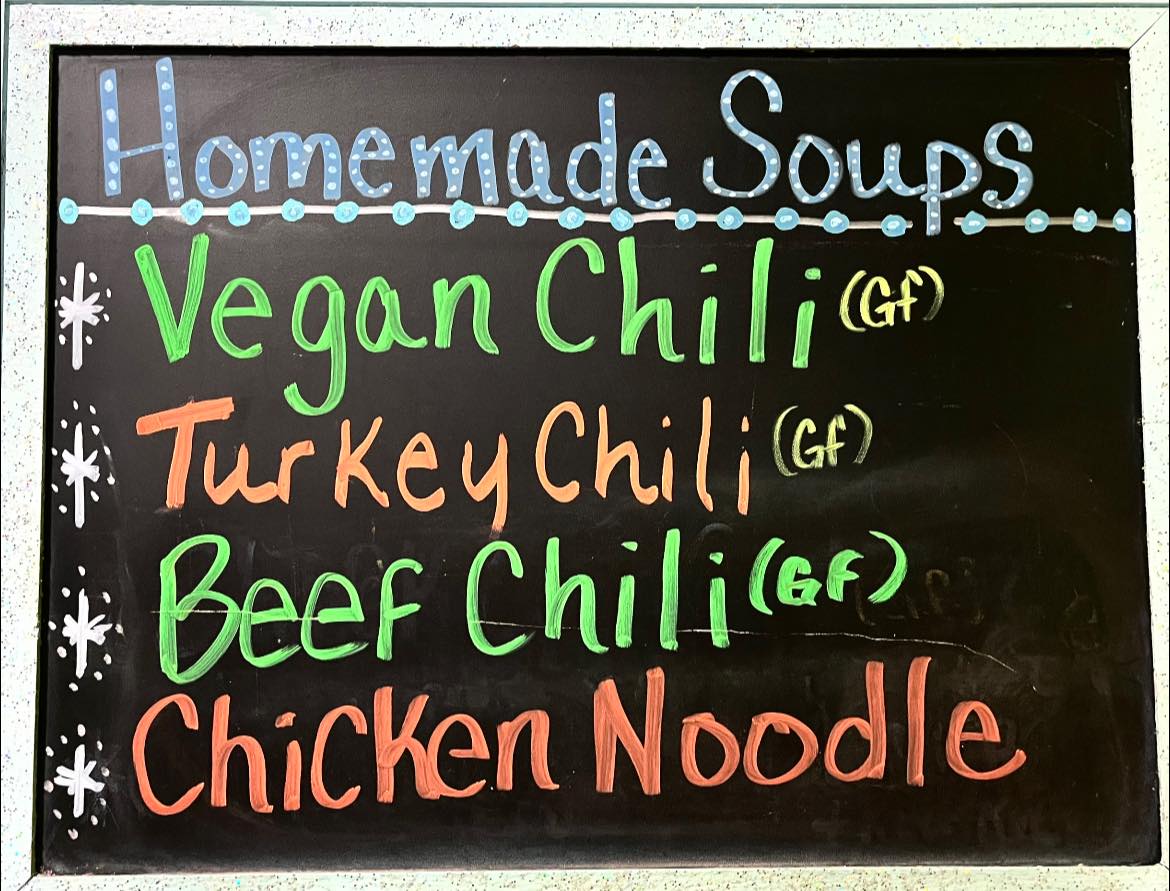 Homemade Soups
Vegan Chili (Gf)
Turkey Chili (Gf)
Beef Chili (GF)
Chicken Noodle